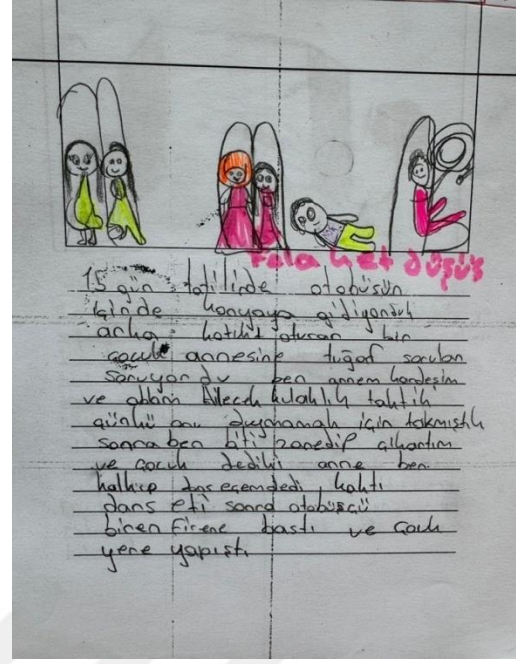 Felaket düşüş
15 gün tatilinde otobüsün
içinde konyaya gidiyorduk
arka oturan bir
çocuk annesine tuğaf soruları
soruyordu ben annem kardeşim
ve ablam kulaklık taktık
günkü onu duymamak için takmıştık
sonra ben biti zanedip çıkartım
ve çocuk dediki anne ben
kalkıp dans ecem dedi kalktı
dans eti sonra otobüscü
biren firene bastı ve çocuk
yere yapıştı